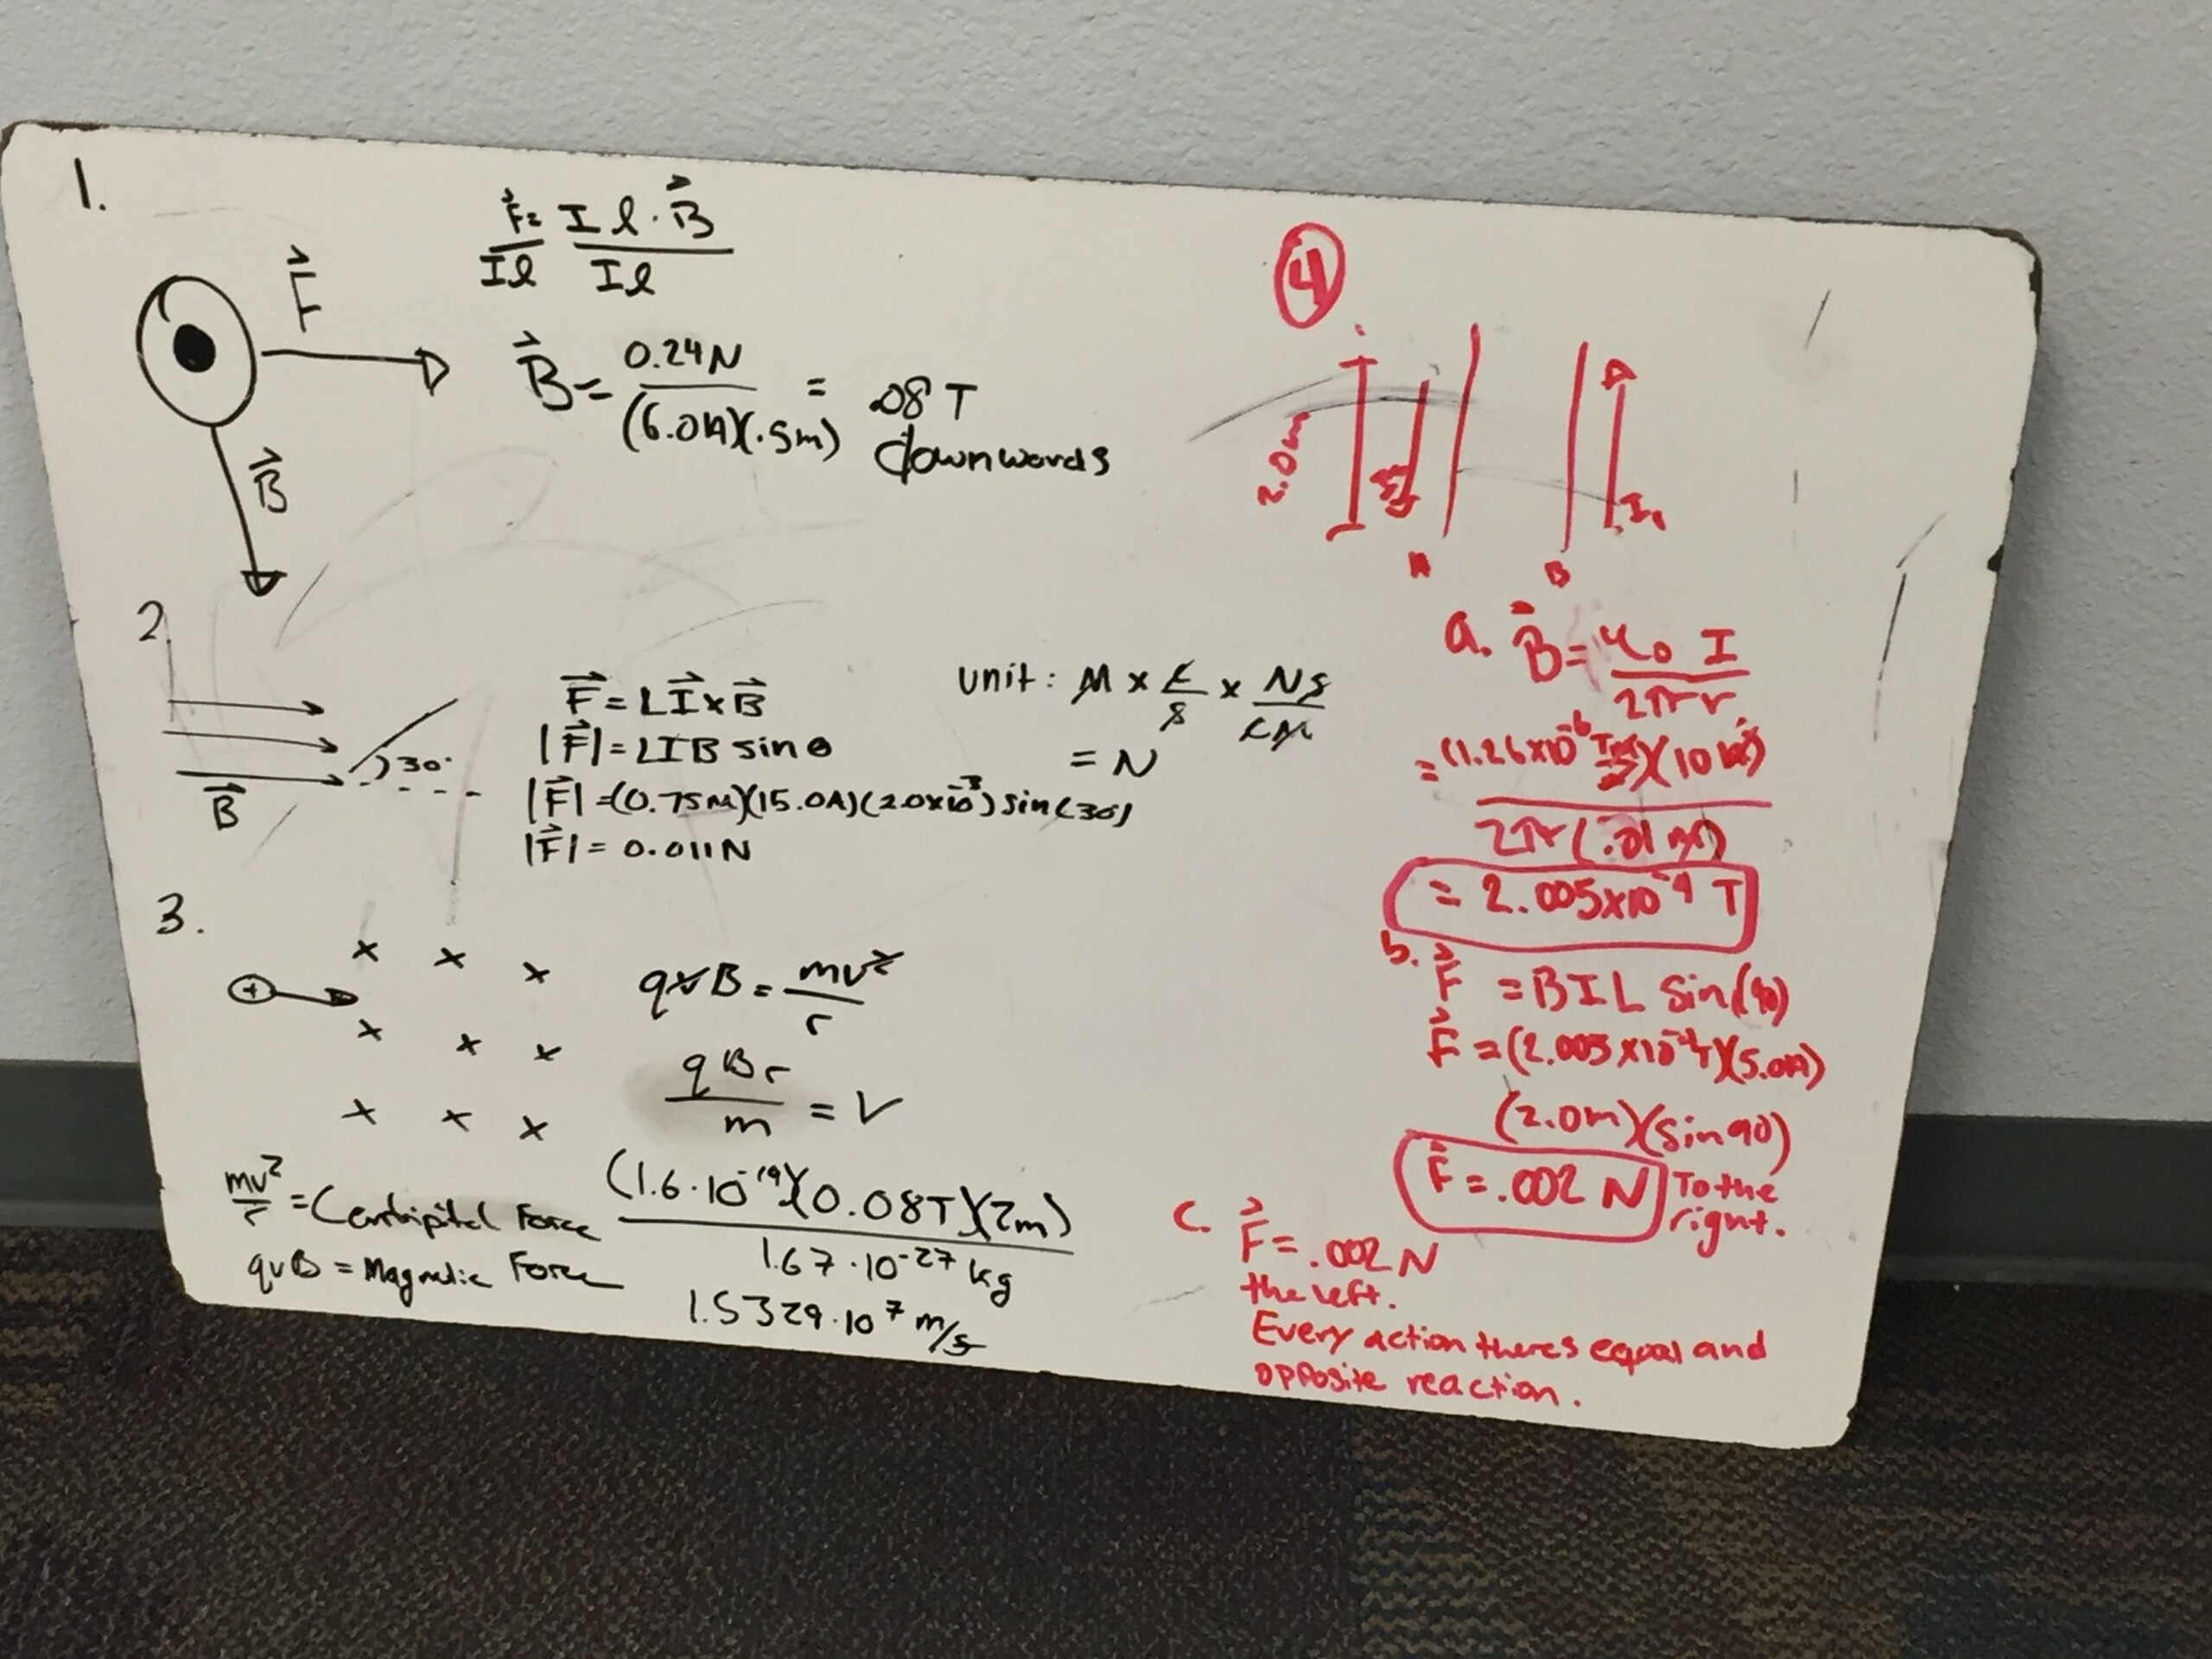 1.
F⃗ = I l · B⃗
Il Il
F⃗
B⃗ = 0.24N / (6.0A)(.5m) = .08 T
downwards
B⃗
2.
F⃗ = L I⃗ x B⃗
|F⃗| = LIB sin θ
|F⃗| = (0.75m)(15.0A)(2.0x10⁻³) sin(30°)
|F⃗| = 0.011N
30°
B⃗
unit: M x C/s x Ns/CM
= N
3.
+
x x x
x x x
x x x
qvB = mv²/r
qBr/m = V
mv²/r = Centripital Force
qvB = Magnetic Force
(1.6·10⁻¹⁹)(0.08T)(2m)
1.67·10⁻²⁷ kg
1.5329·10⁷ m/s
4
2.0m
I₁
A B
a. B⃗ = μ0 I / 2πr
= (1.26x10⁻⁶ )(10 )
2π(.01m)
= 2.005x10⁻⁴ T
b. F⃗ = BIL sin(90)
F⃗ = (2.005x10⁻⁴T)(5.0A)
(2.0m)(sin90)
F⃗ = .002 N To the
right.
c. F⃗ = .002 N
the left.
Every action theres equal and
opposite reaction.